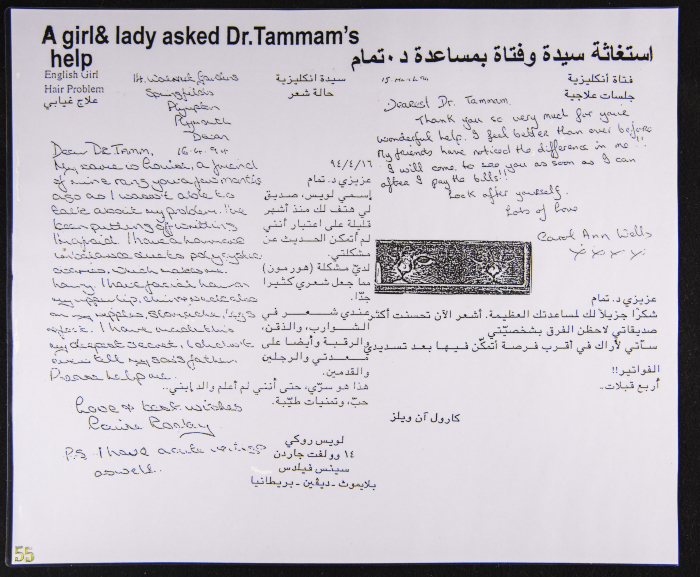 A girl& lady asked Dr.Tammam's
help
استغاثة سيدة وفتاة بمساعدة د٠تمام
English Girl
Hair Problem
علاج غيابي
14. Gardens
Springfields
Plympton
Plymouth
Devon
سيدة انكليزية
حالة شعر
Dear DR. Tamm, 16.4.94
My name is Louise, a friend
of mine rang you a few months
ago as I wasn't able to
talk about my problem. I've
been putting off writing
I'm afraid. I have a hormone
imbalance due to polycystic
ovaries, which makes me
hairy. I have facial hair on
my upper lip, chin, neck also
on my nipples, stomache, legs
& feet. I have made this
my deepest secret. I don't
even tell my said father.
Please help me.
Love & best wishes
Louise
P.S. I have acute
aswell..
٩٤/٤/١٦
عزيزي د. تمام
إسمي لويس، صديق
لي هتف لك منذ أشهر
قليلة على اعتبار أنني
لم أتمكن الحديث عن
مشكلتي.
لديّ مشكلة (هورمون)
مما جعل شعري كثيرا
جدّا.
عندي شعر في
الشوارب، والذقن،
والرقبة وأيضا على
معدتي والرجلين
والقدمين.
هذا هو سرّي، حتى أنني لم أعلم والد إبني..
حبّ، وتمنيات طيّبة.
لويس روكي
١٤ وولفت جاردن
سينس فيلدس
بلايموث - ديڤين - بريطانيا
فتاة أنكليزية
جلسات علاجية
15
Dearest Dr. Tammam.
Thank you so very much for your
wonderful help. I feel better than ever before
My friends have noticed the difference in me!!!
I will come to see you as soon as I can
after I pay the bills!!
Look after yourself.
Lots of love
Carol Ann Wells
x x x x
عزيزي د. تمام
شكرا جزيلا لك لمساعدتك العظيمة. أشعر الآن تحسنت أكثر
صديقاتي لاحظن الفرق بشخصيّتي
سآتي لأراك في أقرب فرصة أتمكّن فيها بعد تسديدي
الفواتير!!
أربع قبلات-
كارول آن ويلز
55